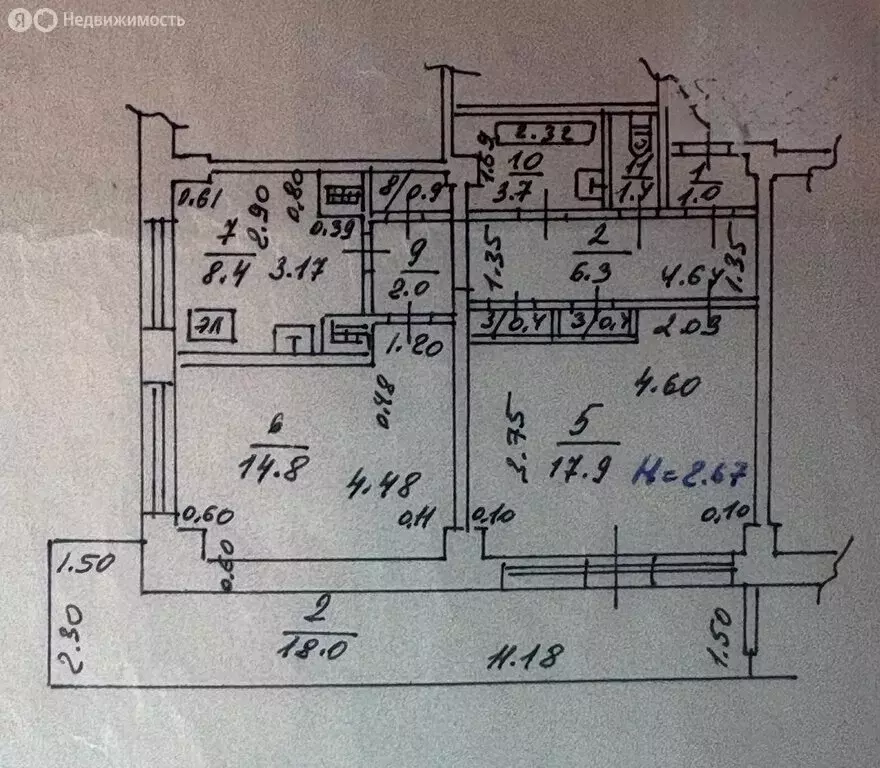 Я Недвижимость
2.32
1.69
10
3.7
11
1.4
1
1.0
0.61
2.90
0.80
8/0.9
0.39
7
8.4
3.17
9
2.0
1.35
2
6.3
4.64
1.35
ЭЛ
Т
Т
1.20
3/0.4
3/0.4
2.09
0.48
4.60
6
14.8
4.48
3.75
5
17.9
H=2.67
0.60
0.11
0.10
0.10
0.60
1.50
2.30
2
18.0
11.18
1.50